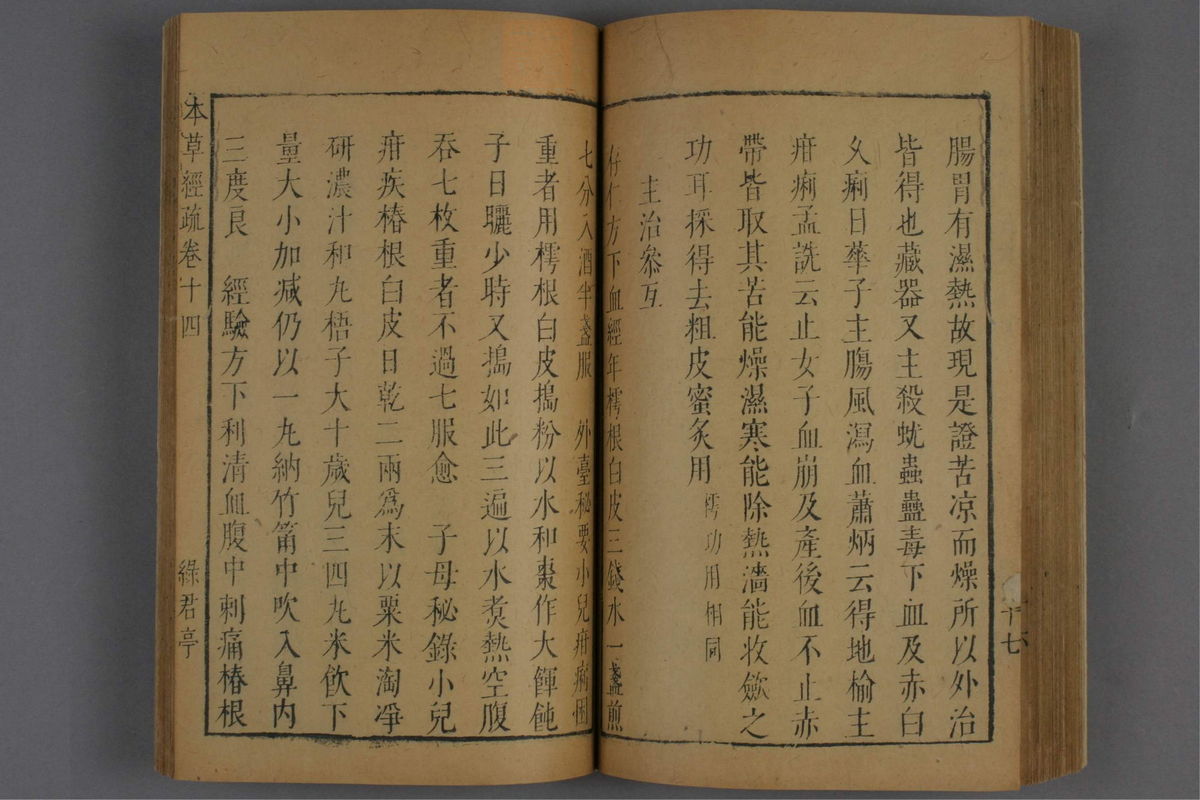 腸胃有濕熱故現是證苦凉而燥所以外治
皆得也藏器又主殺蚘蟲蠱毒下血及赤白
久痢日華子主腸風瀉血蕭炳云得地榆主
疳痢孟詵云止女子血崩及產後血不止赤
帶皆取其苦能燥濕寒能除熱濇能收歛之
功耳採得去粗皮蜜炙用 樗功用相同
主治叅互
仁方下血經年樗根白皮三錢水一盞煎
七分入酒半盞服 外臺秘要小兒疳痢困
重者用樗根白皮搗粉以水和棗作大餛飩
子日曬少時又搗如此三遍以水煑熱空腹
吞七枚重者不過七服愈 子母秘錄小兒
疳疾椿根白皮日乾二兩爲末以粟米淘凈
研濃汁和丸梧子大十歲兒三四丸米飲下
量大小加减仍以一丸納竹筩中吹入鼻內
三度良 經驗方下利清血腹中刺痛椿根
本草經疏卷十四 綠君亭
十七